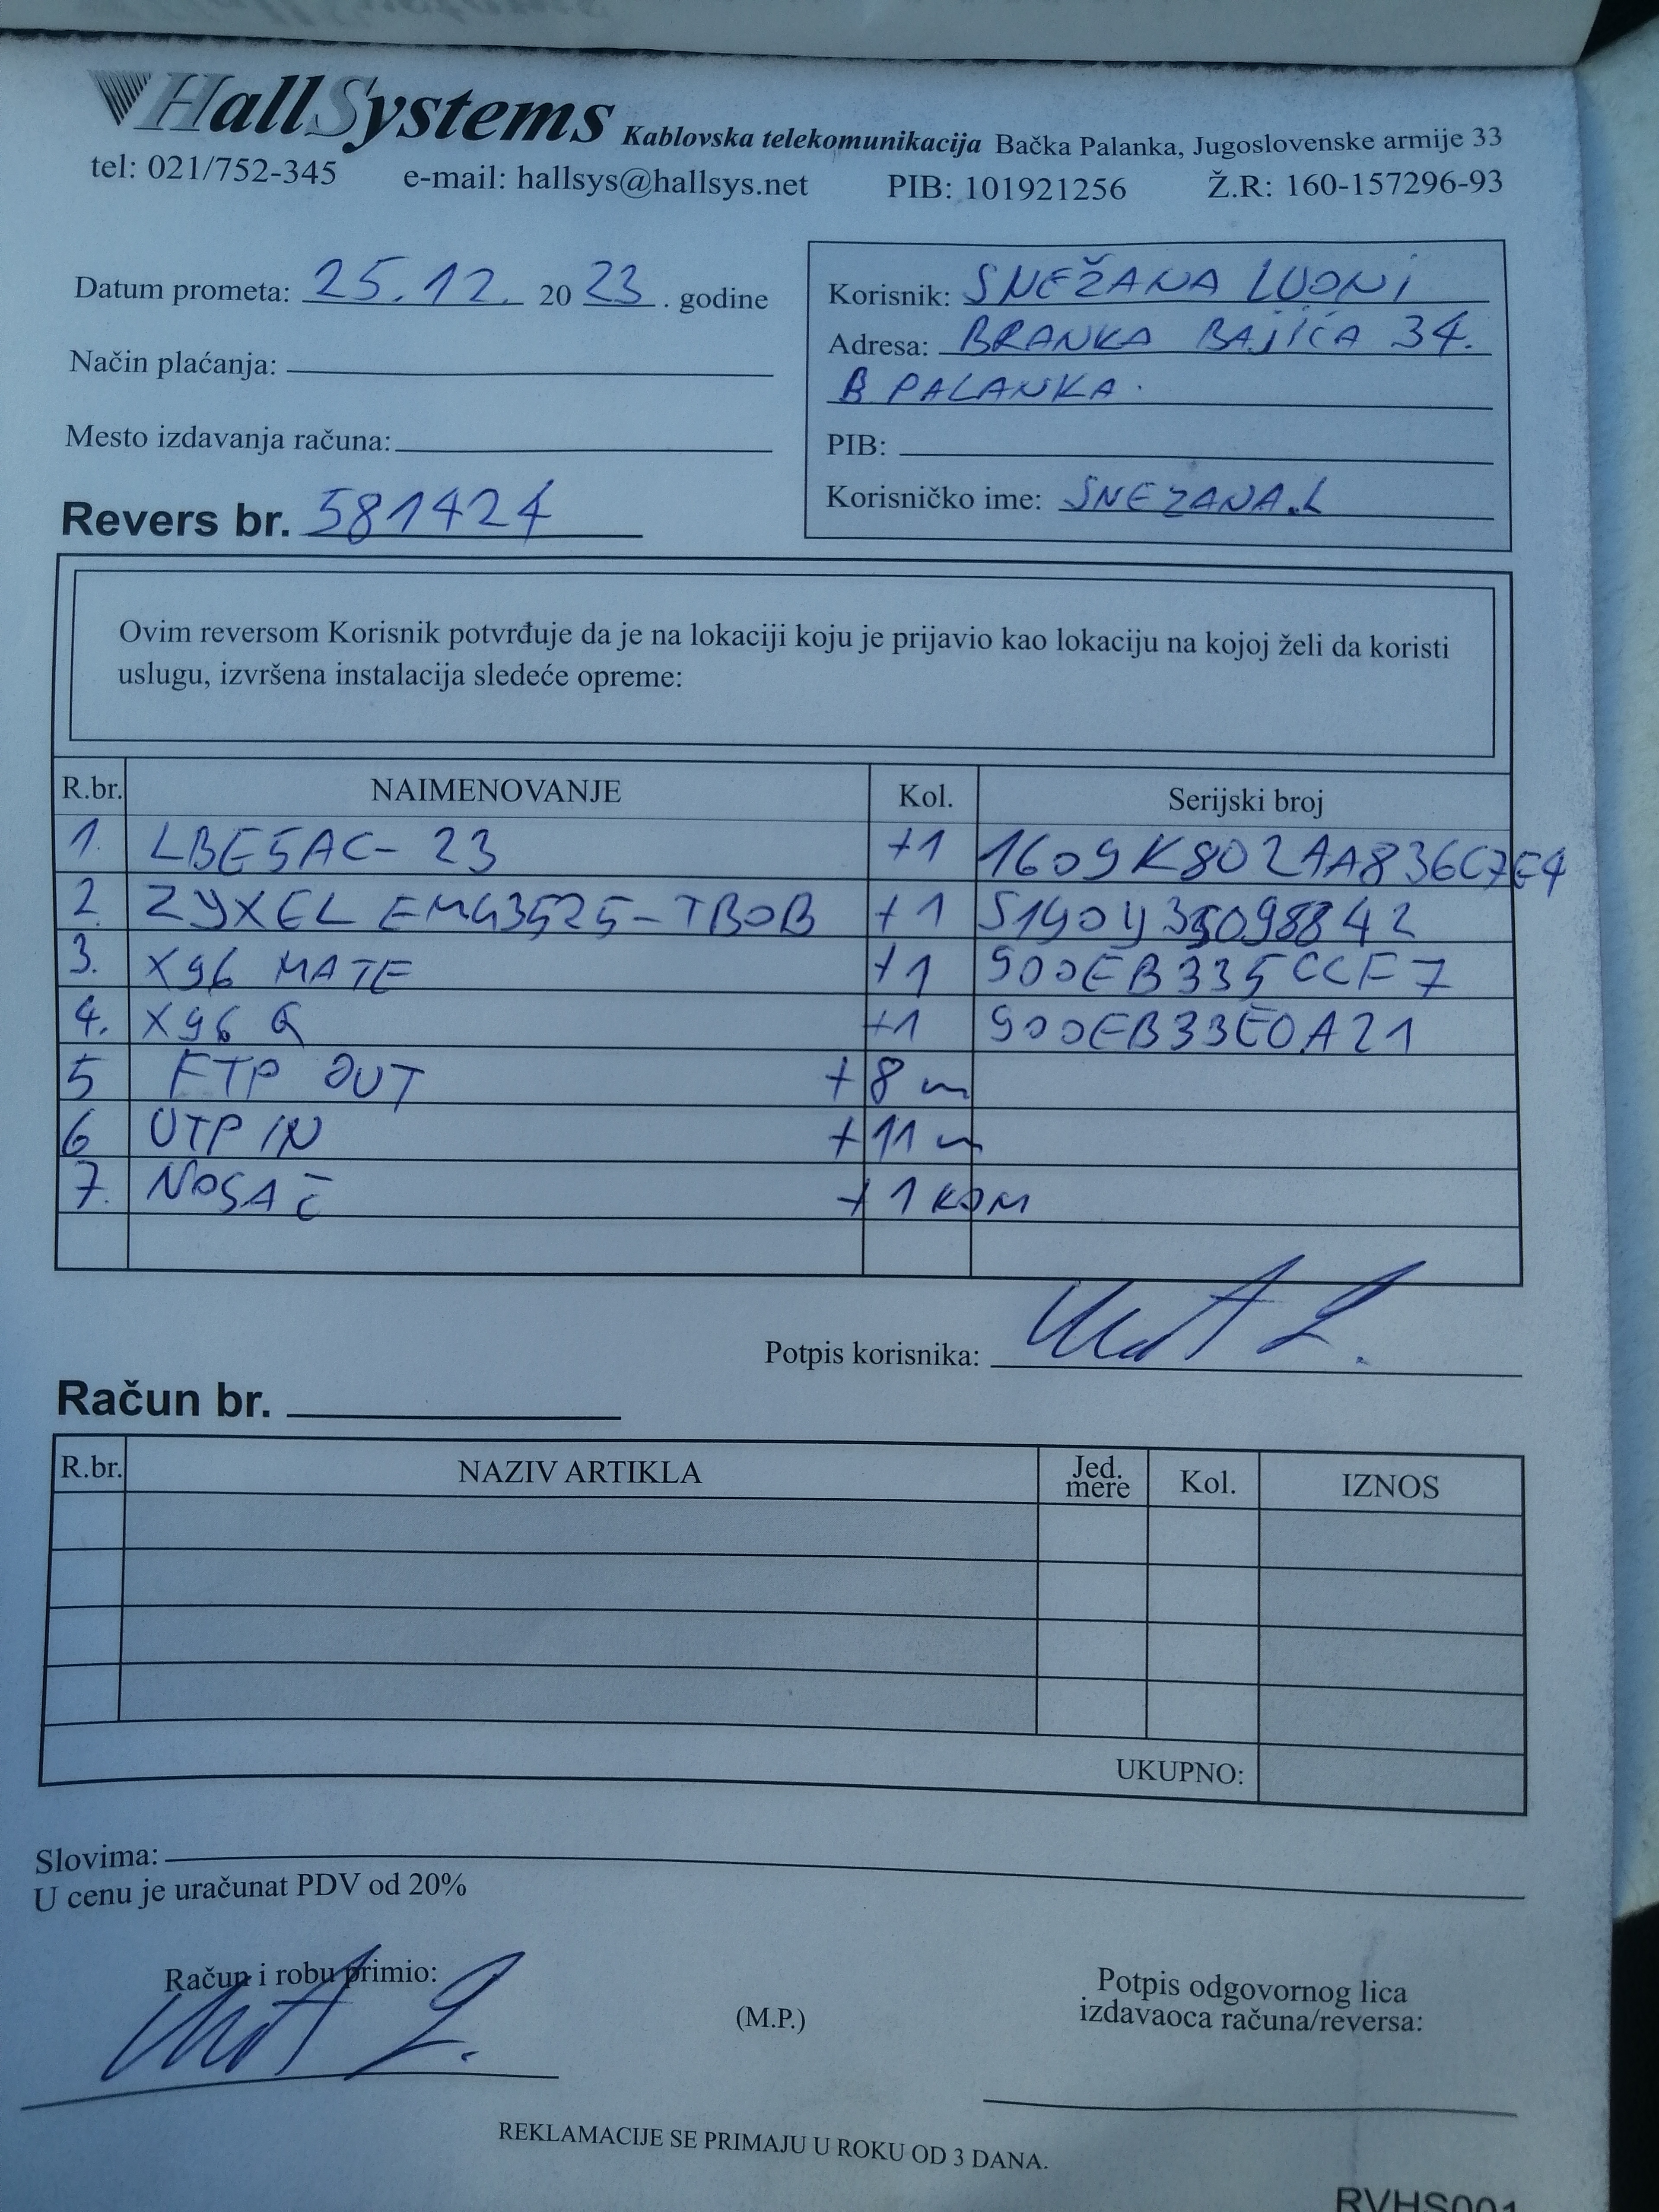 HallSystems Kablovska telekomunikacija Bačka Palanka, Jugoslovenske armije 33
tel: 021/752-345 e-mail: hallsys@hallsys.net PIB: 101921256 Ž.R: 160-157296-93
Datum prometa: 25.12. 2023. godine
Način plaćanja:
Mesto izdavanja računa:
Revers br. 581424
Korisnik: SNEŽANA LUONI
Adresa: BRANKA BAJIĆA 34.
B PALANKA.
PIB:
Korisničko ime: SNEZANA.L
Ovim reversom Korisnik potvrđuje da je na lokaciji koju je prijavio kao lokaciju na kojoj želi da koristi
uslugu, izvršena instalacija sledeće opreme:
R.br. NAIMENOVANJE Kol. Serijski broj
1. LBE5AC-23 +1 1609K802AA836C7E4
2. ZYXEL EMG3525-TBOB +1 S190Y35098842
3. X96 MATE +1 900EB335CCF7
4. X96 Q +1 900EB33E0A21
5 FTP OUT +8 m
6 UTP IN +11 m
7. NOSAČ +1 KOM
Potpis korisnika:
Račun br.
R.br. NAZIV ARTIKLA Jed. mere Kol. IZNOS
UKUPNO:
Slovima:
U cenu je uračunat PDV od 20%
Račun i robu primio:
(M.P.)
Potpis odgovornog lica
izdavaoca računa/reversa:
REKLAMACIJE SE PRIMAJU U ROKU OD 3 DANA.
RVHS001